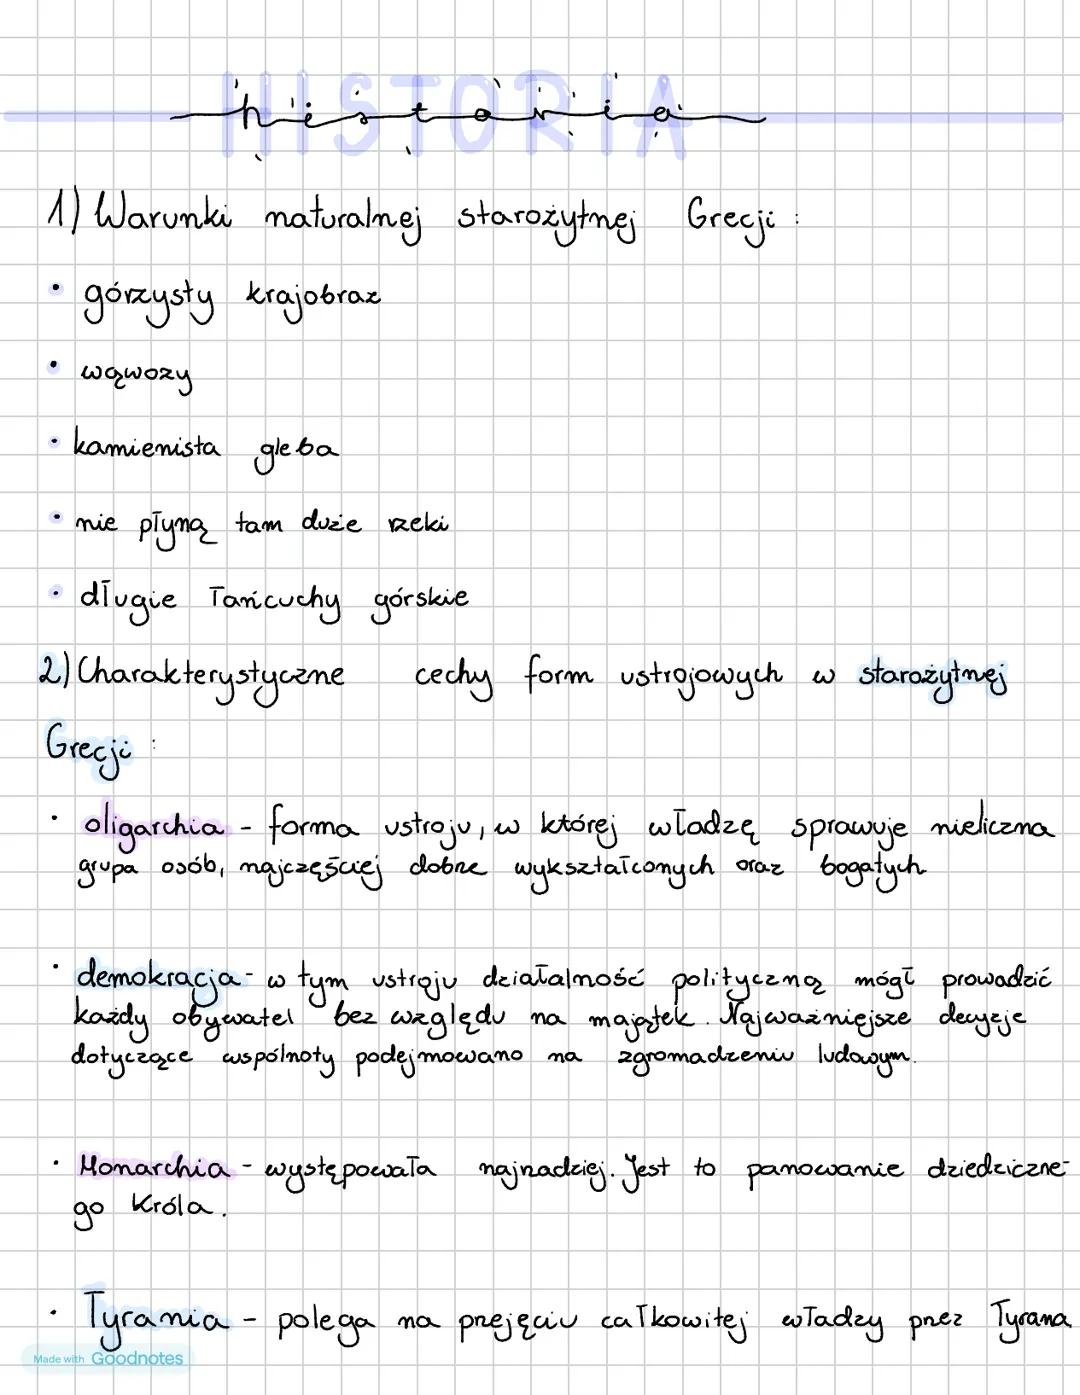 HISTORIA
historia
1) Warunki naturalnej starożytnej Grecji :
• górzysty krajobraz
• wąwozy
• kamienista gleba
• nie płyną tam duże rzeki
• długie łańcuchy górskie
2) Charakterystyczne cechy form ustrojowych w starożytnej
Grecji :
• oligarchia - forma ustroju, w której władzę sprawuje nieliczna
grupa osób, najczęściej dobrze wykształconych oraz bogatych
• demokracja - w tym ustroju działalność polityczną mógł prowadzić
każdy obywatel bez względu na majątek. Najważniejsze decyzje
dotyczące wspólnoty podejmowano na zgromadzeniu ludowym.
• Monarchia - występowała najrzadziej. Jest to panowanie dziedziczne-
go Króla.
• Tyrania - polega na przejęciu całkowitej władzy przez Tyrana
Made with Goodnotes